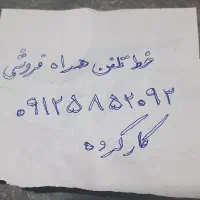 خط تلفن همراه فروشی
۰۹۱۲۵۸۵۲۰۹۳
کارکرده